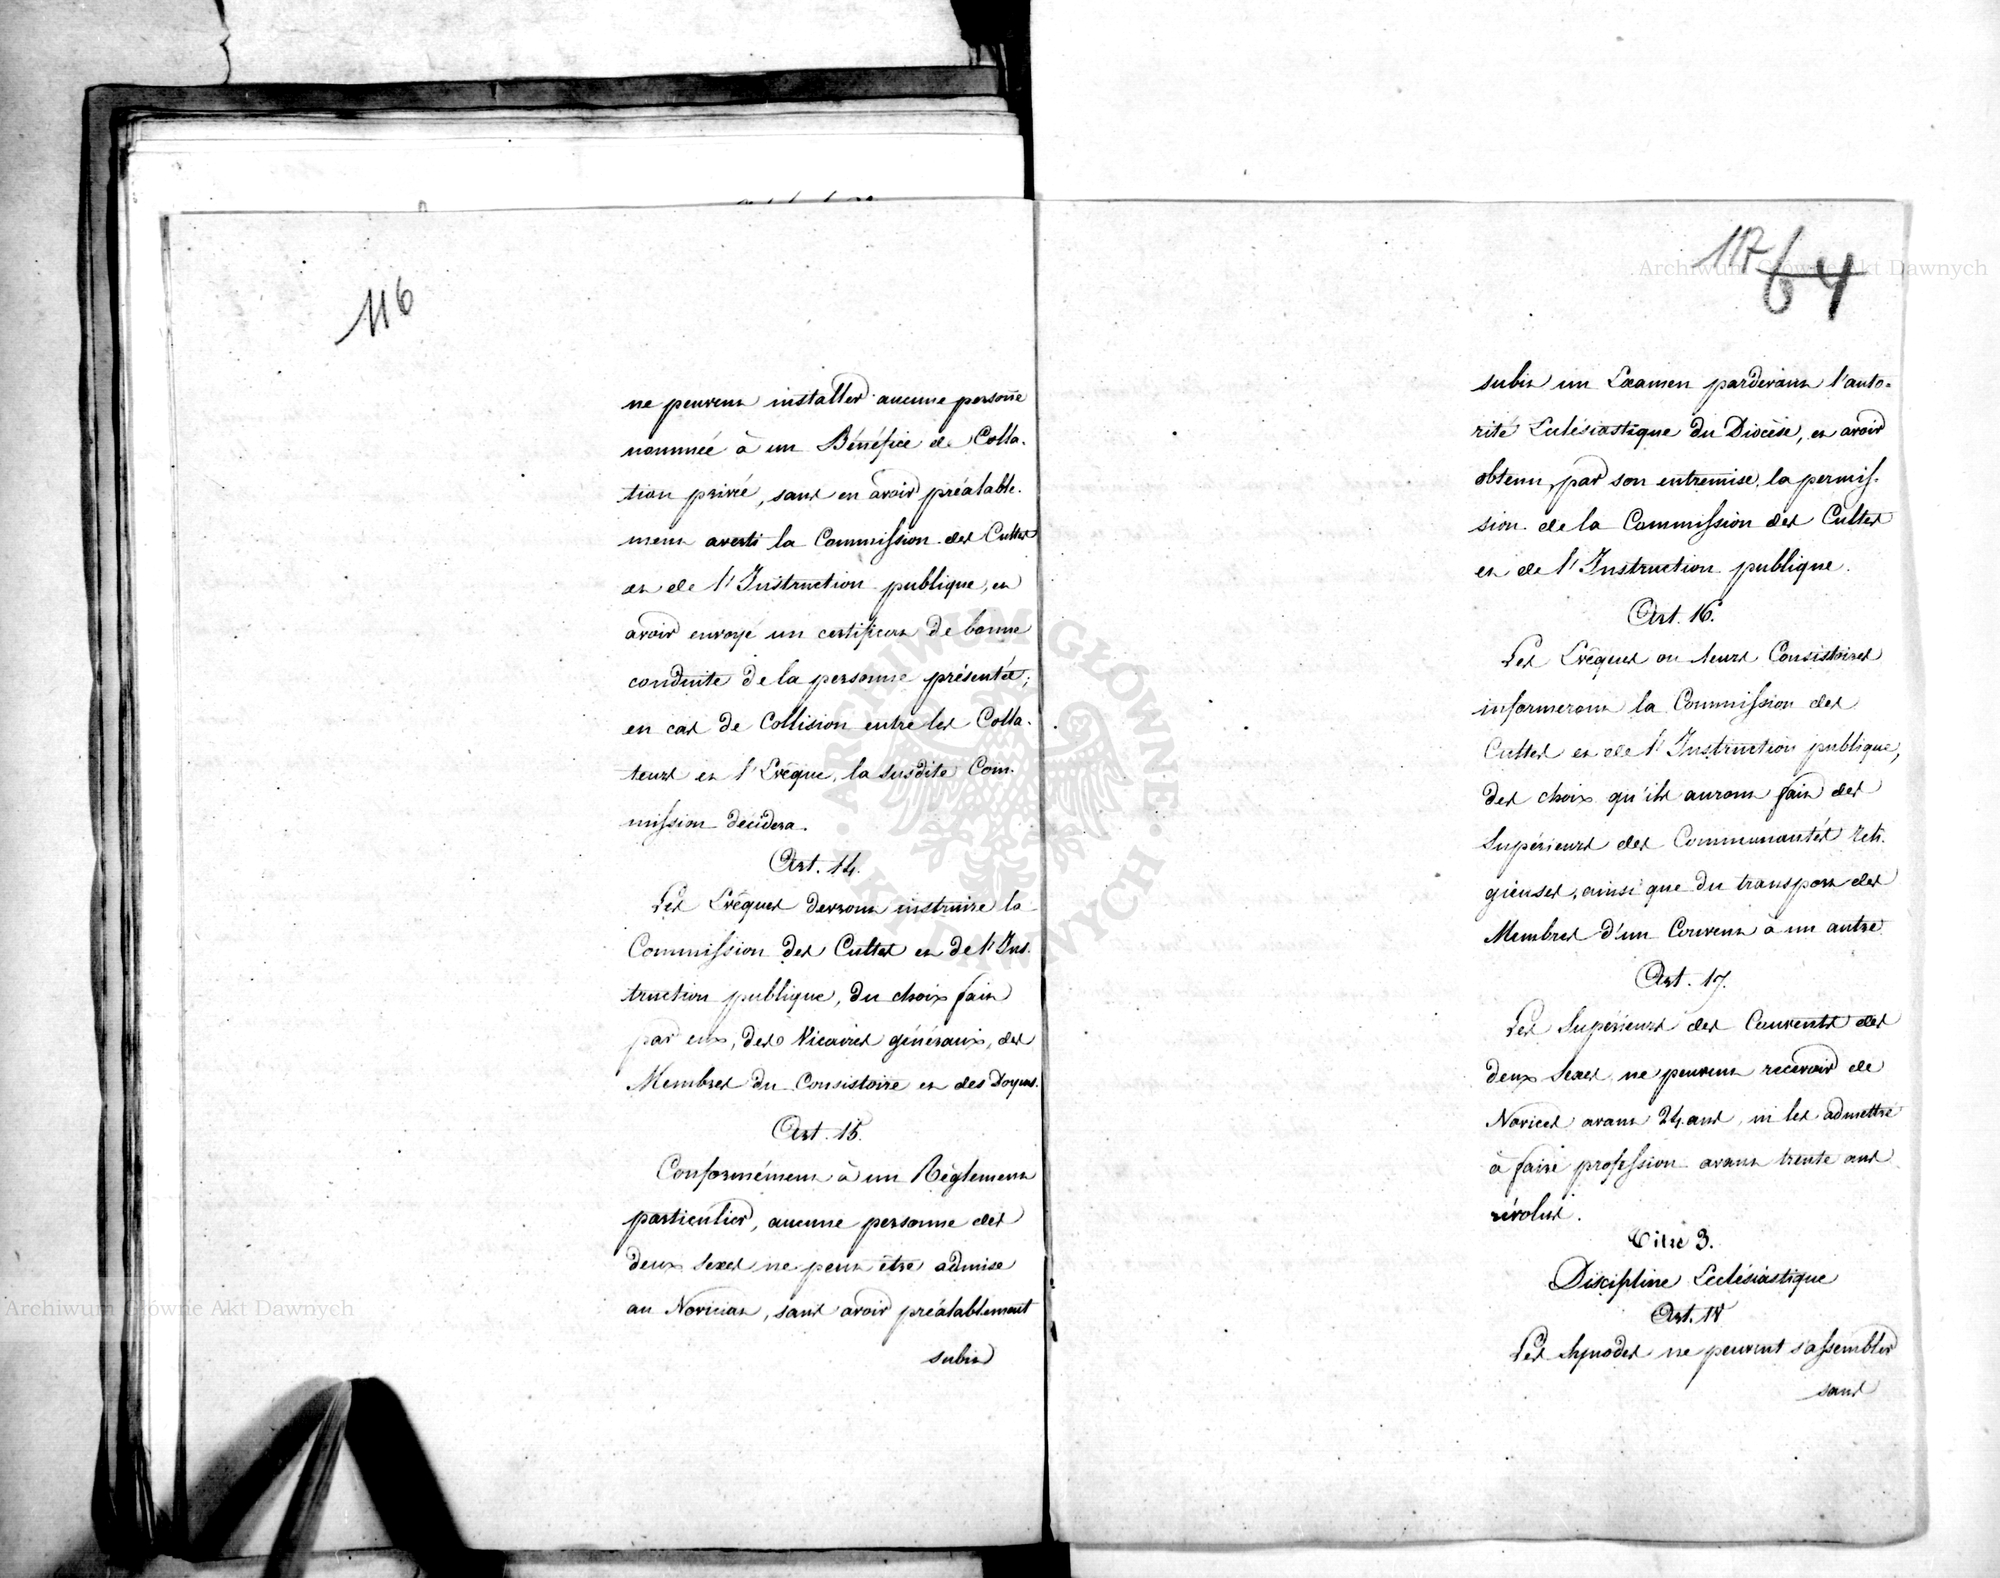 116
ne peuvent installer aucune personne
nommée à un Bénéfice de Colla-
tion privée, sans en avoir préalable-
ment averti la Commission des Cultes
et de l'Instruction publique, et
avoir envoyé un certificat de bonne
conduite de la personne présentée;
en cas de Collision entre les Colla-
teurs et l'Evêque, la susdite Com-
mission decidera.
Art. 14.
Les Evêques devront instruire la
Commission des Cultes et de l'Ins-
truction publique, du choix fait
par eux, des Vicaires généraux, des
Membres du Consistoire et des Doyens.
Art. 15.
Conformément à un Règlement
particulier, aucune personne des
deux sexes ne peut être admise
au Noviciat, sans avoir préalablement
subir
117
64
subir un Examen pardevant l'auto-
rité Eclésiastique du Diocèse, et avoir
obtenu, par son entremise, la permis-
sion de la Commission des Cultes
et de l'Instruction publique.
Art. 16.
Les Evêques ou leurs Consistoires
informeront la Commission des
Cultes et de l'Instruction publique,
des choix qu'ils auront fait des
Supérieurs des Communautés reli-
gieuses, ainsi que du transport des
Membres d'un Couvent à un autre.
Art. 17.
Les Supérieurs des Couvents des
deux sexes ne peuvent recevoir de
Novices avant 24 ans, ni les admettre
à faire profession avant trente ans
révolus.
Titre 3.
Discipline Eclésiastique
Art. 18
Les Synodes ne peuvent s'assembler
sans
Archiwum Główne Akt Dawnych
Archiwum Główne Akt Dawnych
ARCHIWUM GŁÓWNE AKT DAWNYCH